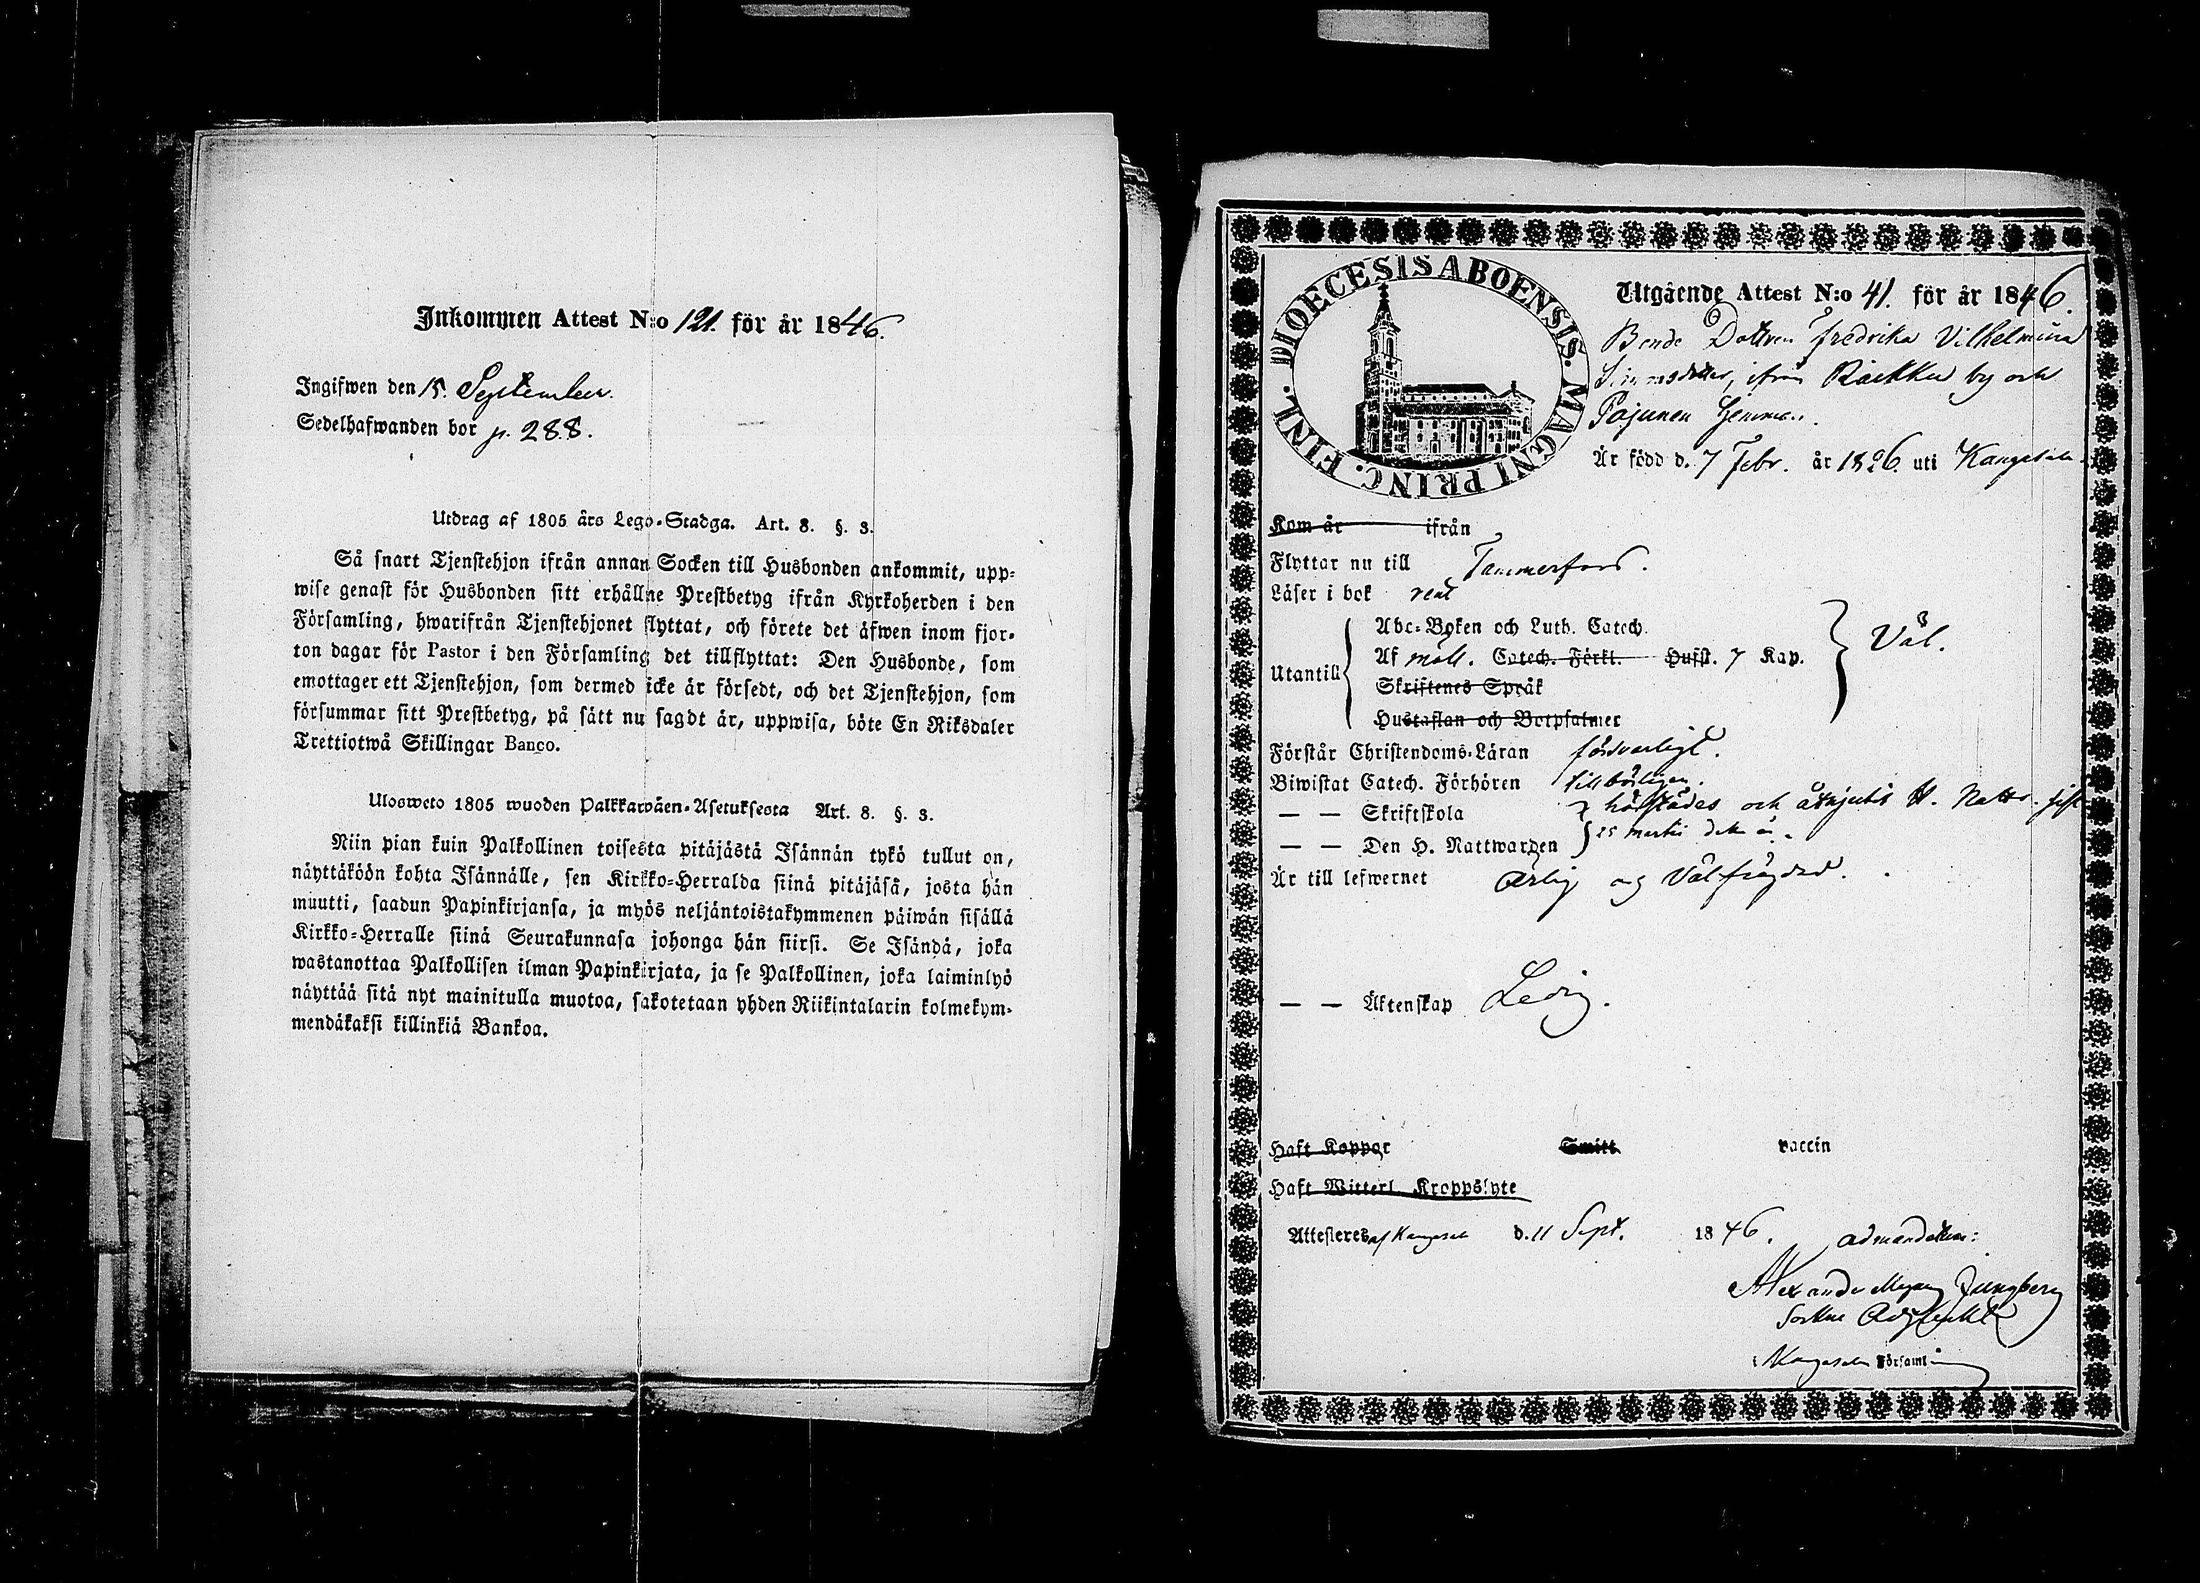 Inkommen Attest N:o 121. för år 1846.
Ingifwen den 15. September.
Sedelhafwanden bor p. 288.
Utdrag af 1805 års Lego-Stadga. Art. 8. §. 3.
Så snart Tjenstehjon ifrån annan Socken till Husbonden ankommit, upp-
wise genast för Husbonden sitt erhållne Prestbetyg ifrån Kyrkoherden i den
Församling, hwarifrån Tjenstehjonet flyttat, och förete det äfwen inom fjor-
ton dagar för Pastor i den Församling det tillflyttat: Den Husbonde, som
emottager ett Tjenstehjon, som dermed icke är försedt, och det Tjenstehjon, som
försummar sitt Prestbetyg, på sätt nu sagdt är, uppwisa, böte En Riksdaler
Trettiotwå Skillingar Banco.
Ulosweto 1805 wuoden Palkkawäen-Asetuksesta Art. 8. §. 3.
Niin pian kuin Palkollinen toisesta pitäjästä Isännän tykö tullut on,
näyttäköön kohta Isännälle, sen Kirkko-Herralda siinä pitäjäsä, josta hän
muutti, saadun Papinkirjansa, ja myös neljäntoistakymmenen päiwän sisällä
Kirkko-Herralle siinä Seurakunnasa johonga hän siirsi. Se Isändä, joka
wastanottaa Palkollisen ilman Papinkirjata, ja se Palkollinen, joka laiminlyö
näyttää sitä nyt mainitulla muotoa, sakotetaan yhden Riikintalarin kolmekym-
mendäkaksi killinkiä Bankoa.
DIOECESIS ABOENSIS. MAGNI PRINC. FINL.
Utgående Attest N:o 41. för år 1846.
Bonde Dottren Fredrika Vilhelmina
ifrån Raikku by och
Pajunen Hemman.
Är född d. 7 Febr. år 1826. uti Kangasala
Kom år ifrån
Flyttar nu till Tammerfors.
Läser i bok rent
Utantill
Abc-Boken och Luth. Catech.
Af Catech. Förkl. Husst. 7 Kap.
Skriftenes Språk
Hustaflan och Botpsalmer
Väl.
Förstår Christendoms-Läran försvarligt.
Biwistat Catech. Förhören tillbörligen.
— — Skriftskola och åtnjutit H. Nattv.
— — Den H. Nattwarden 25 martii
Är till lefwernet ärlig og välfrägdad.
— — Äktenskap Ledig.
Haft Koppor Smitt vaccin
Haft Witterl. Kroppslyte
Attesteres af Kangasala d. 11 Sept. 1846. ad mandatum:
Alexander Ljungberg
Sockne Adjunkt
i Kangasala Församl